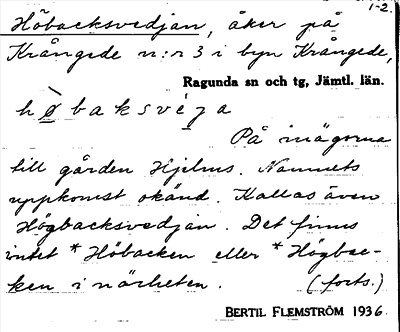 1-2.
Höbacksvedjan, åker på
Krångede n:r 3 i byn Krångede,
Ragunda sn och tg, Jämtl. län.
hø̀baksvéȷa
På inägorna
till gården Hjelms. Namnets
uppkomst okänd. Kallas även
Högbacksvedjan. Det finns
intet * Höbacken eller * Högbac-
ken i närheten. (forts.)
BERTIL FLEMSTRÖM 1936.